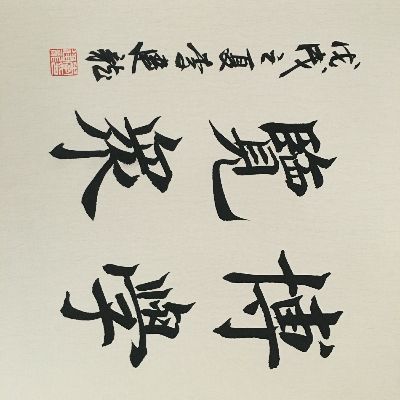 博學
覽眾
戊戌之夏李